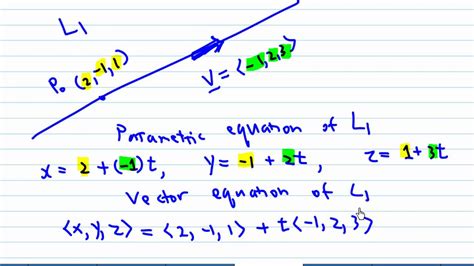 L₁
P₀ (2,-1,1)
v = <-1,2,3>
Parametric equation of L₁
x = 2 + (-1)t, y = -1 + 2t, z = 1 + 3t
Vector equation of L₁
<x,y,z> = <2,-1,1> + t<-1,2,3>